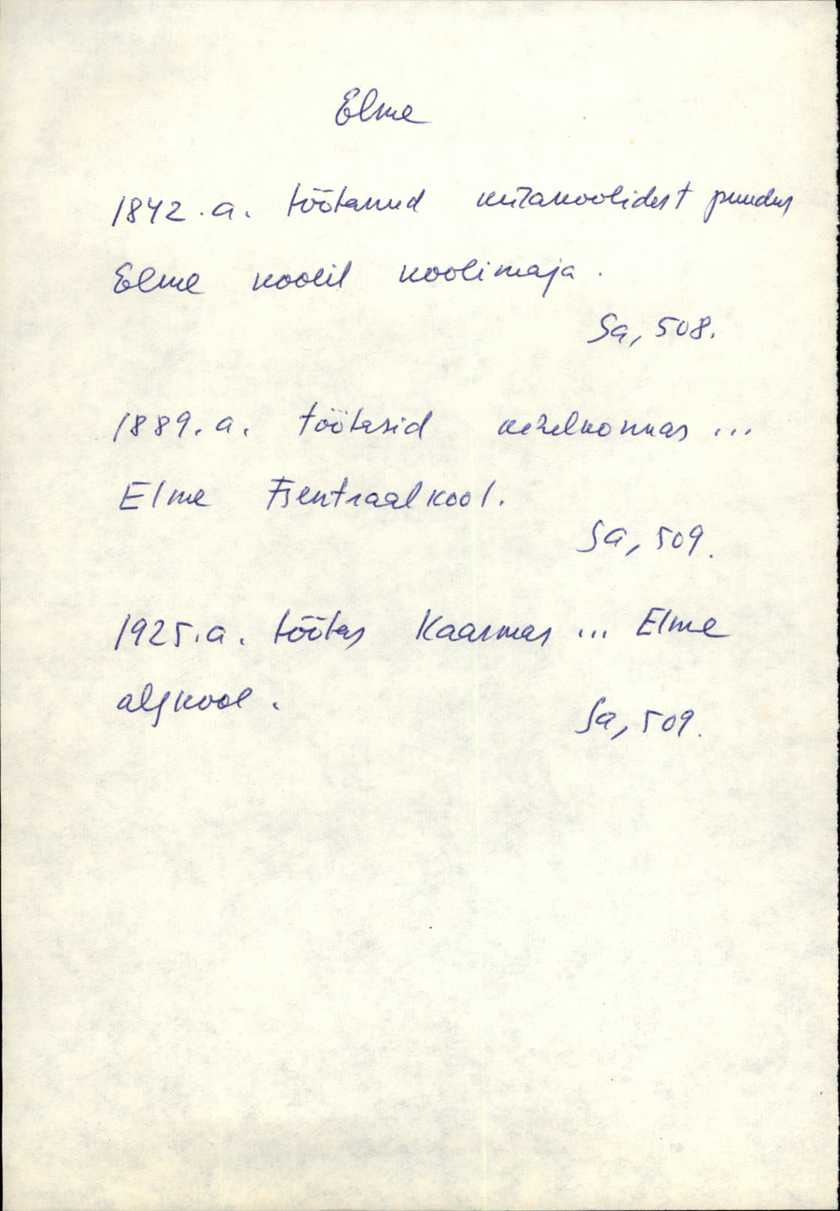 Elme
1842.a. töötanud külakoolidest puudus
Elme koolil koolimaja.
Sa, 508.
1889.a. töötasid kihelkonnas ...
Elme Tsentraalkool.
Sa, 509.
1925.a. töötas Kaarmas ... Elme
algkool.
Sa, 509.